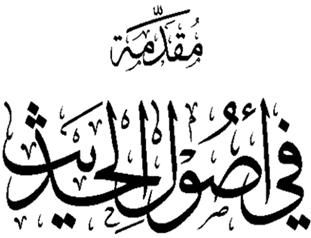 مُقَدِّمَة
في أُصُولِ الحَدِيث